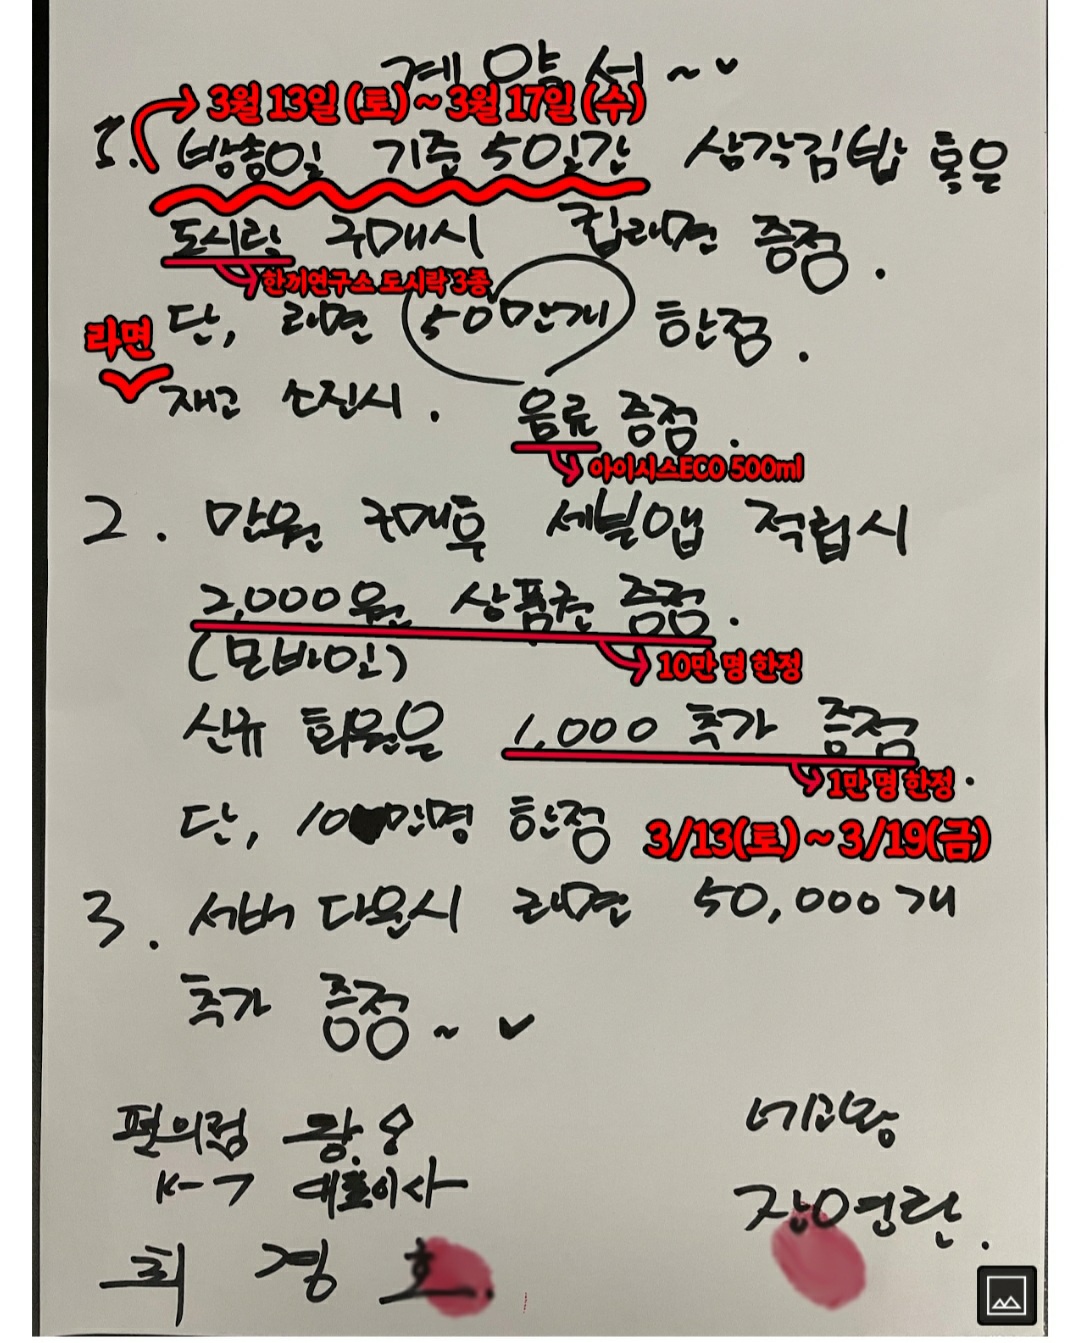 계약서~
3월 13일 (토) ~ 3월 17일 (수)
1. 방송일 기준 50일간 삼각김밥 혹은
도시락 구매시 컵라면 증정.
한끼연구소 도시락 3종
단, 라면 50만개 한정.
라면
재고 소진시. 음류 증정.
아이시스ECO 500ml
2. 만원 구매후 세븐앱 적립시
2,000원 상품권 증정.
(모바일)
10만 명 한정
신규 회원은 1,000 추가 증정.
1만 명 한정
단, 10만명 한정
3/13(토) ~ 3/19(금)
3. 서버 다운시 라면 50,000개
추가 증정~
편의점 황
K-7 대표이사
최경호.
네고왕
장영란.